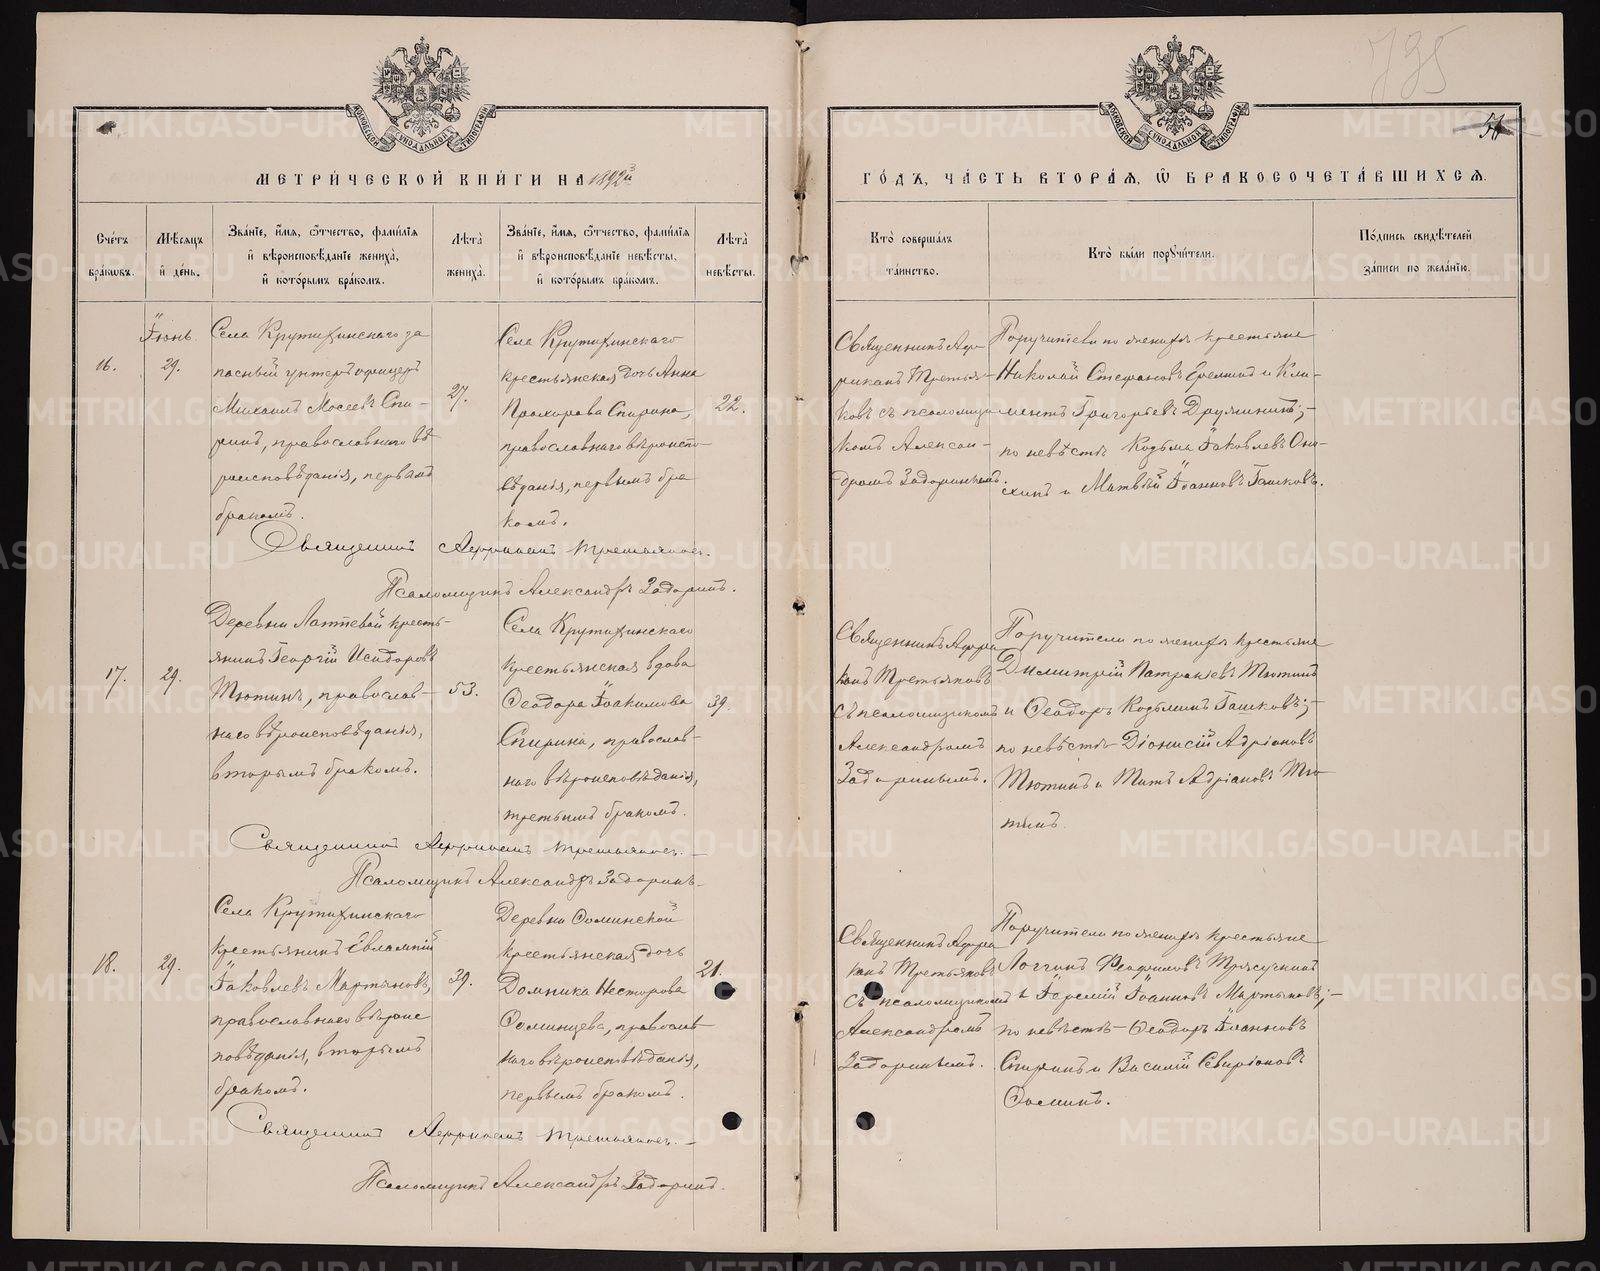 795
51
МЕТРИЧЕСКОЙ КНИГИ НА 1892й
ГОДЪ, ЧАСТЬ ВТОРАЯ, Ѡ БРАКОСОЧЕТАВШИХСЯ.
Счетъ браковъ.
Мѣсяцъ и день.
Званіе, имя, отчество, фамилія и вѣроисповѣданіе жениха, и которымъ бракомъ.
Лѣта жениха.
Званіе, имя, отчество, фамилія и вѣроисповѣданіе невѣсты, и которымъ бракомъ.
Лѣта невѣсты.
Кто совершалъ таинство.
Кто были поручители.
Подпись свидѣтелей записи по желанію.
16.
Іюнь
29.
Села Крутихинскаго за
пасный унтеръ офицеръ
Михаилъ Мосеевъ Спи-
ринъ, православнаго вѣ
роисповѣданія, первымъ
бракомъ.
27.
Села Крутихинскаго
крестьянская дочь Анна
Прохорова Спирина,
православнаго вѣроиспо-
вѣданія, первымъ бра
комъ.
22.
Священникъ Афри
канъ Третья-
ковъ съ псаломщи
комъ Алексан-
дромъ Задоринымъ.
Поручители по женихѣ крестьяне
Николай Стефановъ Ереминъ и Кли-
ментъ Григорьевъ Дружининъ;-
по невѣстѣ Козьма Іаковлевъ Они-
схинъ и Матвѣй Іоанновъ Гашковъ.
Священникъ Африканъ Третьяковъ.
Псаломщикъ Александръ Задоринъ.
17.
29.
Деревни Лаптевой кресть-
янинъ Георгій Исидоровъ
Тютинъ, православ-
наго вѣроисповѣданія,
вторымъ бракомъ.
53.
Села Крутихинскаго
крестьянская вдова
Ѳеодора Іоакимова
Спирина, православ-
наго вѣроисповѣданія,
третьимъ бракомъ.
39.
Священникъ Афри
канъ Третьяковъ
съ псаломщикомъ
Александромъ
Задоринымъ.
Поручители по женихѣ крестьяне
Димитрій Патракіевъ Тютинъ
и Ѳеодоръ Козьминъ Гашковъ;-
по невѣстѣ Діонисій Адріановъ
Тютинъ и Титъ Адріановъ Тю
тинъ.
Священникъ Африканъ Третьяковъ.
Псаломщикъ Александръ Задоринъ.
18.
29.
Села Крутихинскаго
крестьянинъ Евлампій
Іаковлевъ Мартыновъ,
православнаго вѣроис
повѣданія, вторымъ
бракомъ.
39.
Деревни Соминской
крестьянская дочь
Домника Несторова
Соминцева, православ
наго вѣроисповѣданія,
первымъ бракомъ.
21.
Священникъ Афри
канъ Третьяковъ
съ псаломщикомъ
Александромъ
Задоринымъ.
Поручители по женихѣ крестьяне
Логгинъ Ѳеофиловъ Трясучкинъ
и Іеремій Іоанновъ Мартыновъ;-
по невѣстѣ Ѳеодоръ Іоанновъ
Спиринъ и Василій Свиріоновъ
Соминъ.
Священникъ Африканъ Третьяковъ.
Псаломщикъ Александръ Задоринъ.
METRIKI.GASO-URAL.RU